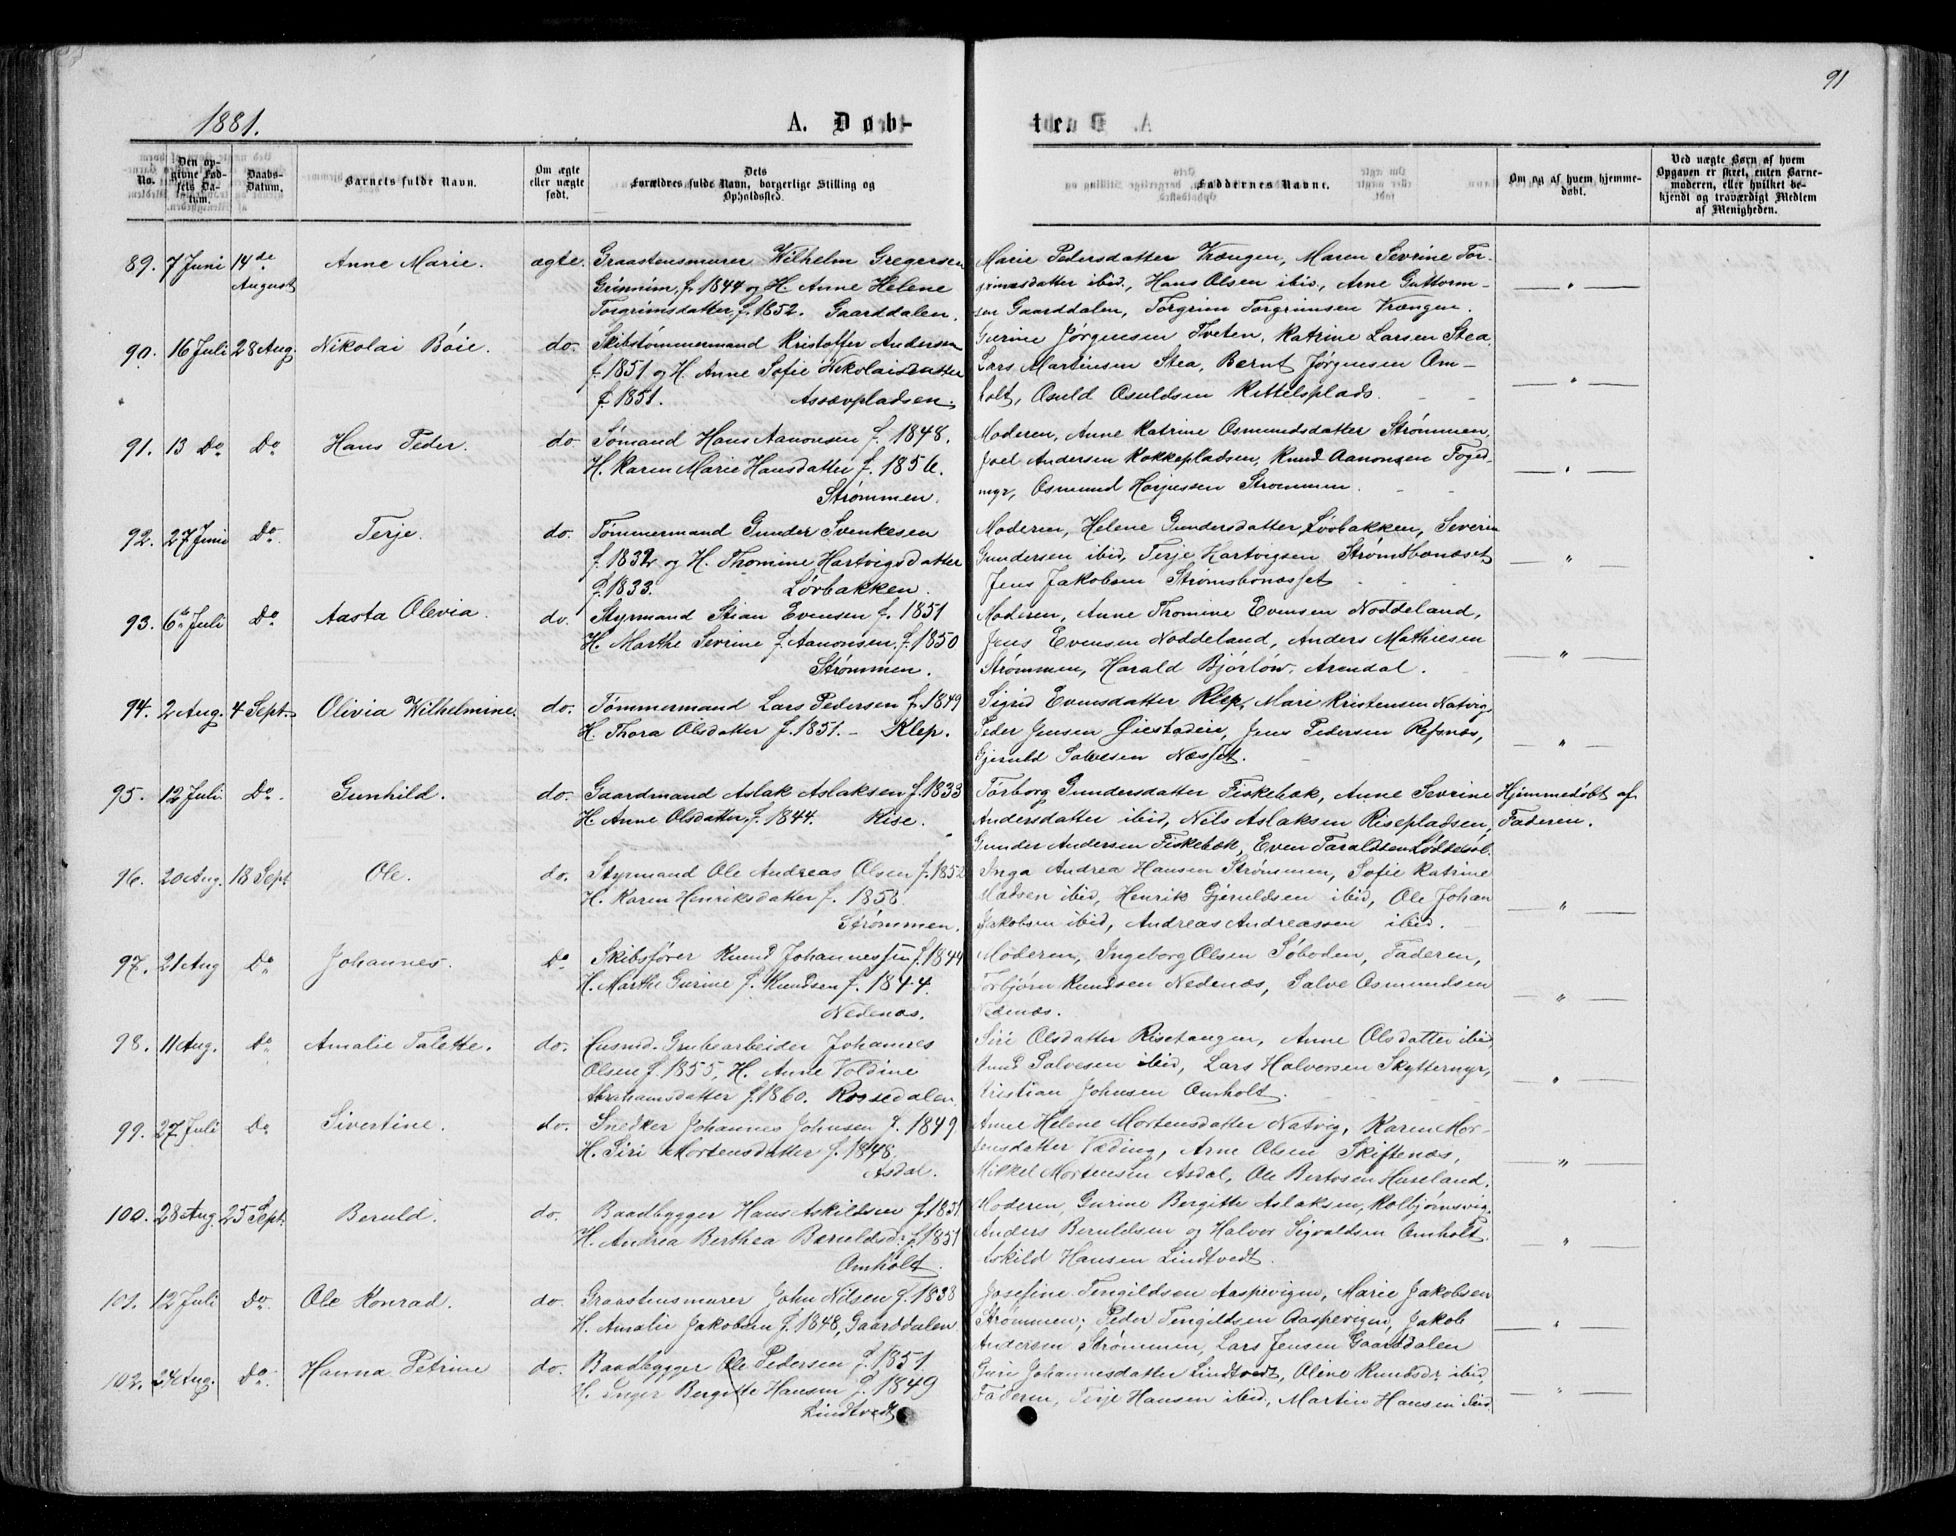 91
1881.
A. Døb-
te.
No.
Den op-
givne Fød-
sels Da-
tum.
Daabs-
Datum.
Barnets fulde Navn.
Om ægte
eller uægte
født.
Dets
Forældres fulde Navn, borgerlige Stilling og
Opholdssted.
Faddernes Navne.
Om og af hvem hjemme-
døbt.
Ved uægte Børn af hvem
Opgaven er skret, enten Barne-
moderen, eller hvilket be-
kjendt og troværdigt Medlem
af Menigheden.
89. 7 Juni 14de August Anne Marie. ægte.
Graastensmurer Wilhelm Gregersen
Grimnim, f. 1844 og H. Anne Helene
Torgrimsdatter, f. 1852. Gaarddalen.
Marie Pedersdatter Vrængen, Maren Sevrine Tor-
grimsdatter ibid., Hans Olsen ibid, Arne Guttorm-
sen Gaarddalen, Torgrim Torgrimsen Vrængen.
— " —
90. 16 Juli 28 Aug. Nikolai Bóie. do.
Skibstømmermand Kristoffer Andersen
f. 1851 og H. Anne Sofie Nikolaisdatter
f. 1851. Assævpladsen.
Gurine Jørgensen Tveten, Katrine Larsen Stea,
Lars Martinsen Stea, Bernt Jørgensen Om-
holt, Osuld Osuldsen Kittelsplads.
— " —
91. 13 Do Do Hans Peder. do
Sømand Hans Aanonsen f. 1848.
H. Karen Marie Hansdatter f. 1856.
Strømmen.
Moderen, Anne Katrine Osmundsdatter Strømmen,
Joel Andersen Kokkepladsen, Knud Aanonsen Foged-
myr, Osmund Horjussen Strømmen.
— " —
92. 27 Juni Do. Terje. do.
Tømmermand Gunder Svenkesen
f. 1832 og H. Thomine Hartvigsdatter
f. 1833. Løvbakken.
Moderen, Helene Gundersdatter, Løvbakken, Severin
Gundersen ibid, Terje Hartvigsen Strømsbonæset
Jens Jakobsen Strømsbonæsset
— " —
93. 6te Juli Do Aasta Olevia. do.
Styrmand Stian Evensen f. 1851
H. Marthe Sevrine f. Aanonsen, f. 1850
Strømmen.
Moderen, Anne Thomine Evensen Noddeland,
Jens Evensen Noddeland, Anders Mathiesen
Strømmen, Harald Bjórlów, Arendal.
— " —
94. 2 Aug. 4 Sept. Olivia Wilhelmine. do.
Tømmermand Lars Pedersen f. 1849
H. Thora Olsdatter f. 1851. – Klep.
Sigrid Evensdatter Klep, Mari Kristensen Natvig,
Peder Jensen Øiestadeie, Jens Pedersen Refsnæs,
Gjeruld Salvesen Næsset.
— " —
95. 12 Juli Do. Gunhild. do.
Gaardmand Aslak Aslaksen f. 1833
H. Anne Olsdatter, f. 1844. Rise.
Torborg Gundersdatter Fiskebæk, Anne Sevrine
Andersdatter ibid, Nils Aslaksen Risepladsen,
Gunder Andersen Fiskebæk, Even Taraldsen Løddesøl.
Hjemmedøbt af
Faderen.
96. 20 Aug. 18 Sept Ole. do.
Styrmand Ole Andreas Olsen f. 1852
H. Karen Henriksdatter f. 1858.
Strømmen.
Inga Andrea Hansen Strømmen, Sofie Katrine
Madsen ibid, Henrik Gjeruldsen ibid, Ole Johan
Jakobsen ibid, Andreas Andreassen ibid.
— " —
97. 21 Aug Do Johannes. Do
Skibsfører Knud Johannessen f. 1844
H. Marthe Gurine f. Knudsen f. 1844.
Nedenæs.
Moderen, Ingeborg Olsen Søboden, Faderen,
Torbjørn Knudsen Nedenæs, Salve Osmundsen
Nedenæs.
— " —
98. 11 Aug. Do Amalie Talette. do.
Husmd. Grubearbeider Johannes
Olsen f. 1855, H. Anne Voldine
Abrahamsdatter f. 1860. Rossedalen
Siri Olsdatter Risetangen, Anne Olsdatter ibid,
Salvesen ibid, Lars Halvorsen Skyttemyr,
Kristian Johnsen Omholt.
— " —
99. 27 Juli Do Sivertine. do.
Snedker Johannes Johnsen f. 1849
H. Siri Mortensdatter f. 1848.
Asdal.
Anne Helene Mortensdatter Natvig, Karen Mor-
tensdatter Væding, Arne Olsen Skiftenæs,
Mikkel Mortensen Asdal, Ole Bertosen Huseland.
— " —
100. 28 Aug 25 Sept. Beruld. do.
Baadbygger Hans Askildsen f. 1851
H. Andrea Berthea Beruldsd: f. 1851
Omholt.
Moderen, Gurine Bergitte Aslaksen, Kolbjørnsvig,
Anders Beruldsen og Halvor Sigvaldsen Omholt.
Askild Hansen Lindtvedt.
— " —
101. 12 Juli Do. Ole Konrad. do.
Graastensmurer John Nilsen f. 1838
H. Amalie Jakobsen f. 1848, Gaarddalen
Josefine Tengildsen Aaspevigen, Marie Jakobsen
Strømmen; Peder Tengildsen Aaspevigen, Jakob
Andersen Strømmen, Lars Jensen Gaarddalen
— " —
102. 24 Aug. Do. Hanna Petrine do.
Baadbygger Ole Pedersen f. 1851.
H. Inger Bergitte Hansen f. 1849
Lindtvedt
Guri Johannesdatter Lindtvedt, Oline Knudsdr ibid,
Faderen, Terje Hansen ibid, Martin Hansen ibid
— " —